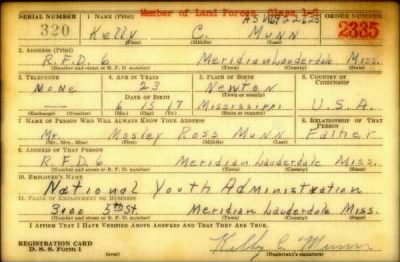 SERIAL NUMBER 1. NAME (Print) Member of Land Forces, Class 1-C ORDER NUMBER
320 Kelly C. Munn 2335
(First) (Middle) (Last)
2. ADDRESS (Print)
R.F.D. 6 Meridian Lauderdale Miss.
(Number and street or R. F. D. number) (Town) (County) (State)
3. TELEPHONE 4. AGE IN YEARS 5. PLACE OF BIRTH 6. COUNTRY OF CITIZENSHIP
None 23 Newton
DATE OF BIRTH (Town or county)
6 15 17 Mississippi U.S.A.
(Exchange) (Number) (Mo.) (Day) (Yr.) (State or country)
7. NAME OF PERSON WHO WILL ALWAYS KNOW YOUR ADDRESS 8. RELATIONSHIP OF THAT PERSON
Mr. Mosley Ross Munn Father
(Mr., Mrs., Miss) (First) (Middle) (Last)
9. ADDRESS OF THAT PERSON
R.F.D. 6 Meridian Lauderdale Miss.
(Number and street or R. F. D. number) (Town) (County) (State)
10. EMPLOYER'S NAME
National Youth Administration
11. PLACE OF EMPLOYMENT OR BUSINESS
3100 5th St. Meridian Lauderdale Miss.
(Number and street or R. F. D. number) (Town) (County) (State)
I AFFIRM THAT I HAVE VERIFIED ABOVE ANSWERS AND THAT THEY ARE TRUE.
REGISTRATION CARD
D. S. S. Form 1 (over) Kelly C. Munn
(Registrant's signature)